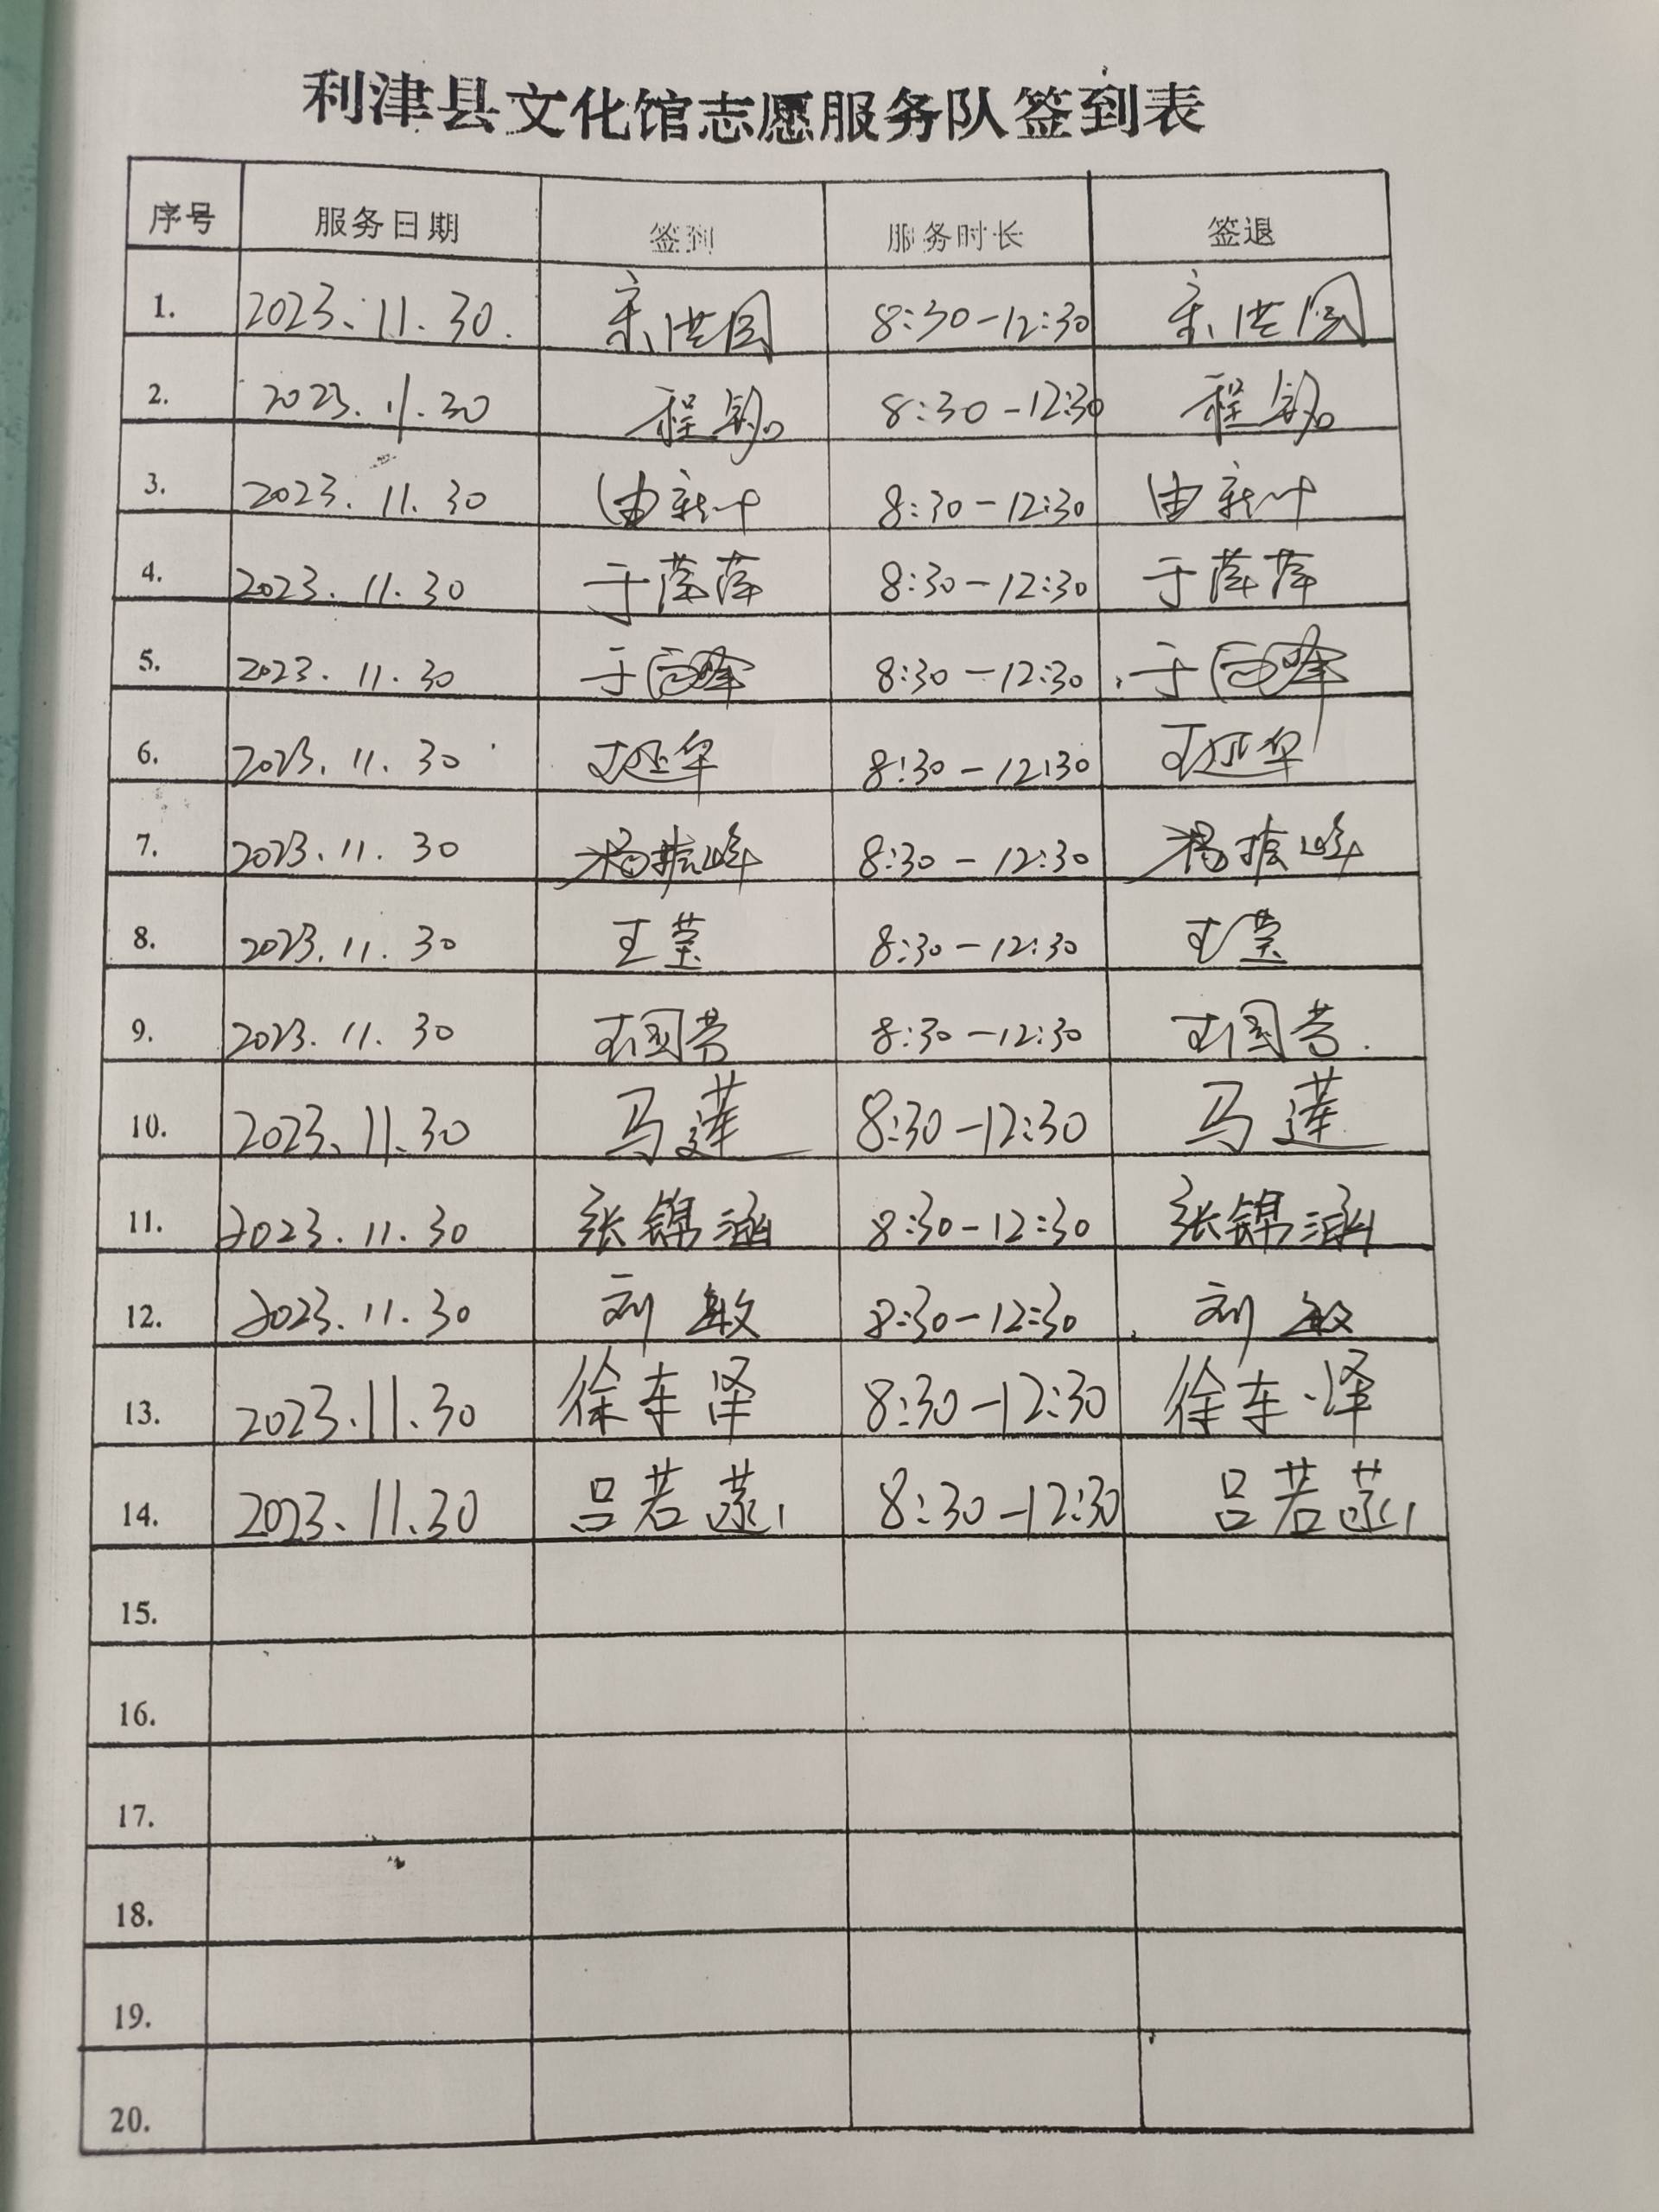 利津县文化馆志愿服务队签到表
序号 服务日期 签到 服务时长 签退
1. 2023.11.30. 宋洪国 8:30-12:30 宋洪国
2. 2023.11.30 程 8:30-12:30 程
3. 2023.11.30 由新叶 8:30-12:30 由新叶
4. 2023.11.30 于萍萍 8:30-12:30 于萍萍
5. 2023.11.30 于 8:30-12:30 于
6. 2023.11.30 王延华 8:30-12:30 王延华
7. 2023.11.30 杨振峰 8:30-12:30 杨振峰
8. 2023.11.30 王莹 8:30-12:30 王莹
9. 2023.11.30 王国芳 8:30-12:30 王国芳
10. 2023.11.30 马莲 8:30-12:30 马莲
11. 2023.11.30 张锦涵 8:30-12:30 张锦涵
12. 2023.11.30 刘敏 8:30-12:30 刘敏
13. 2023.11.30 徐车泽 8:30-12:30 徐车泽
14. 2023.11.30 吕若菡 8:30-12:30 吕若菡
15.
16.
17.
18.
19.
20.